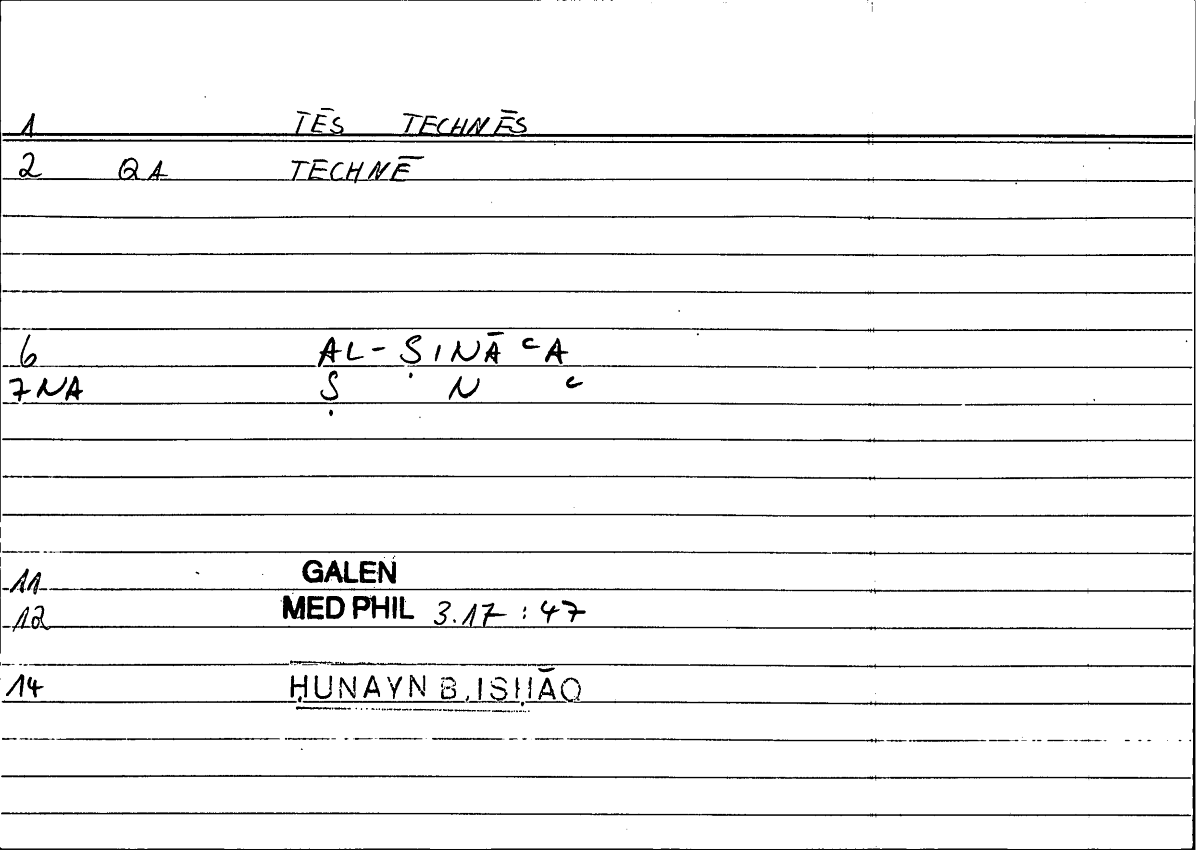 1 TĒS TECHNĒS
2 QA TECHNĒ
6 AL-ṢINĀʿA
7NA Ṣ N ʿ
11 GALEN
12 MED PHIL 3.17 : 47
14 ḤUNAYN B. ISḤĀQ